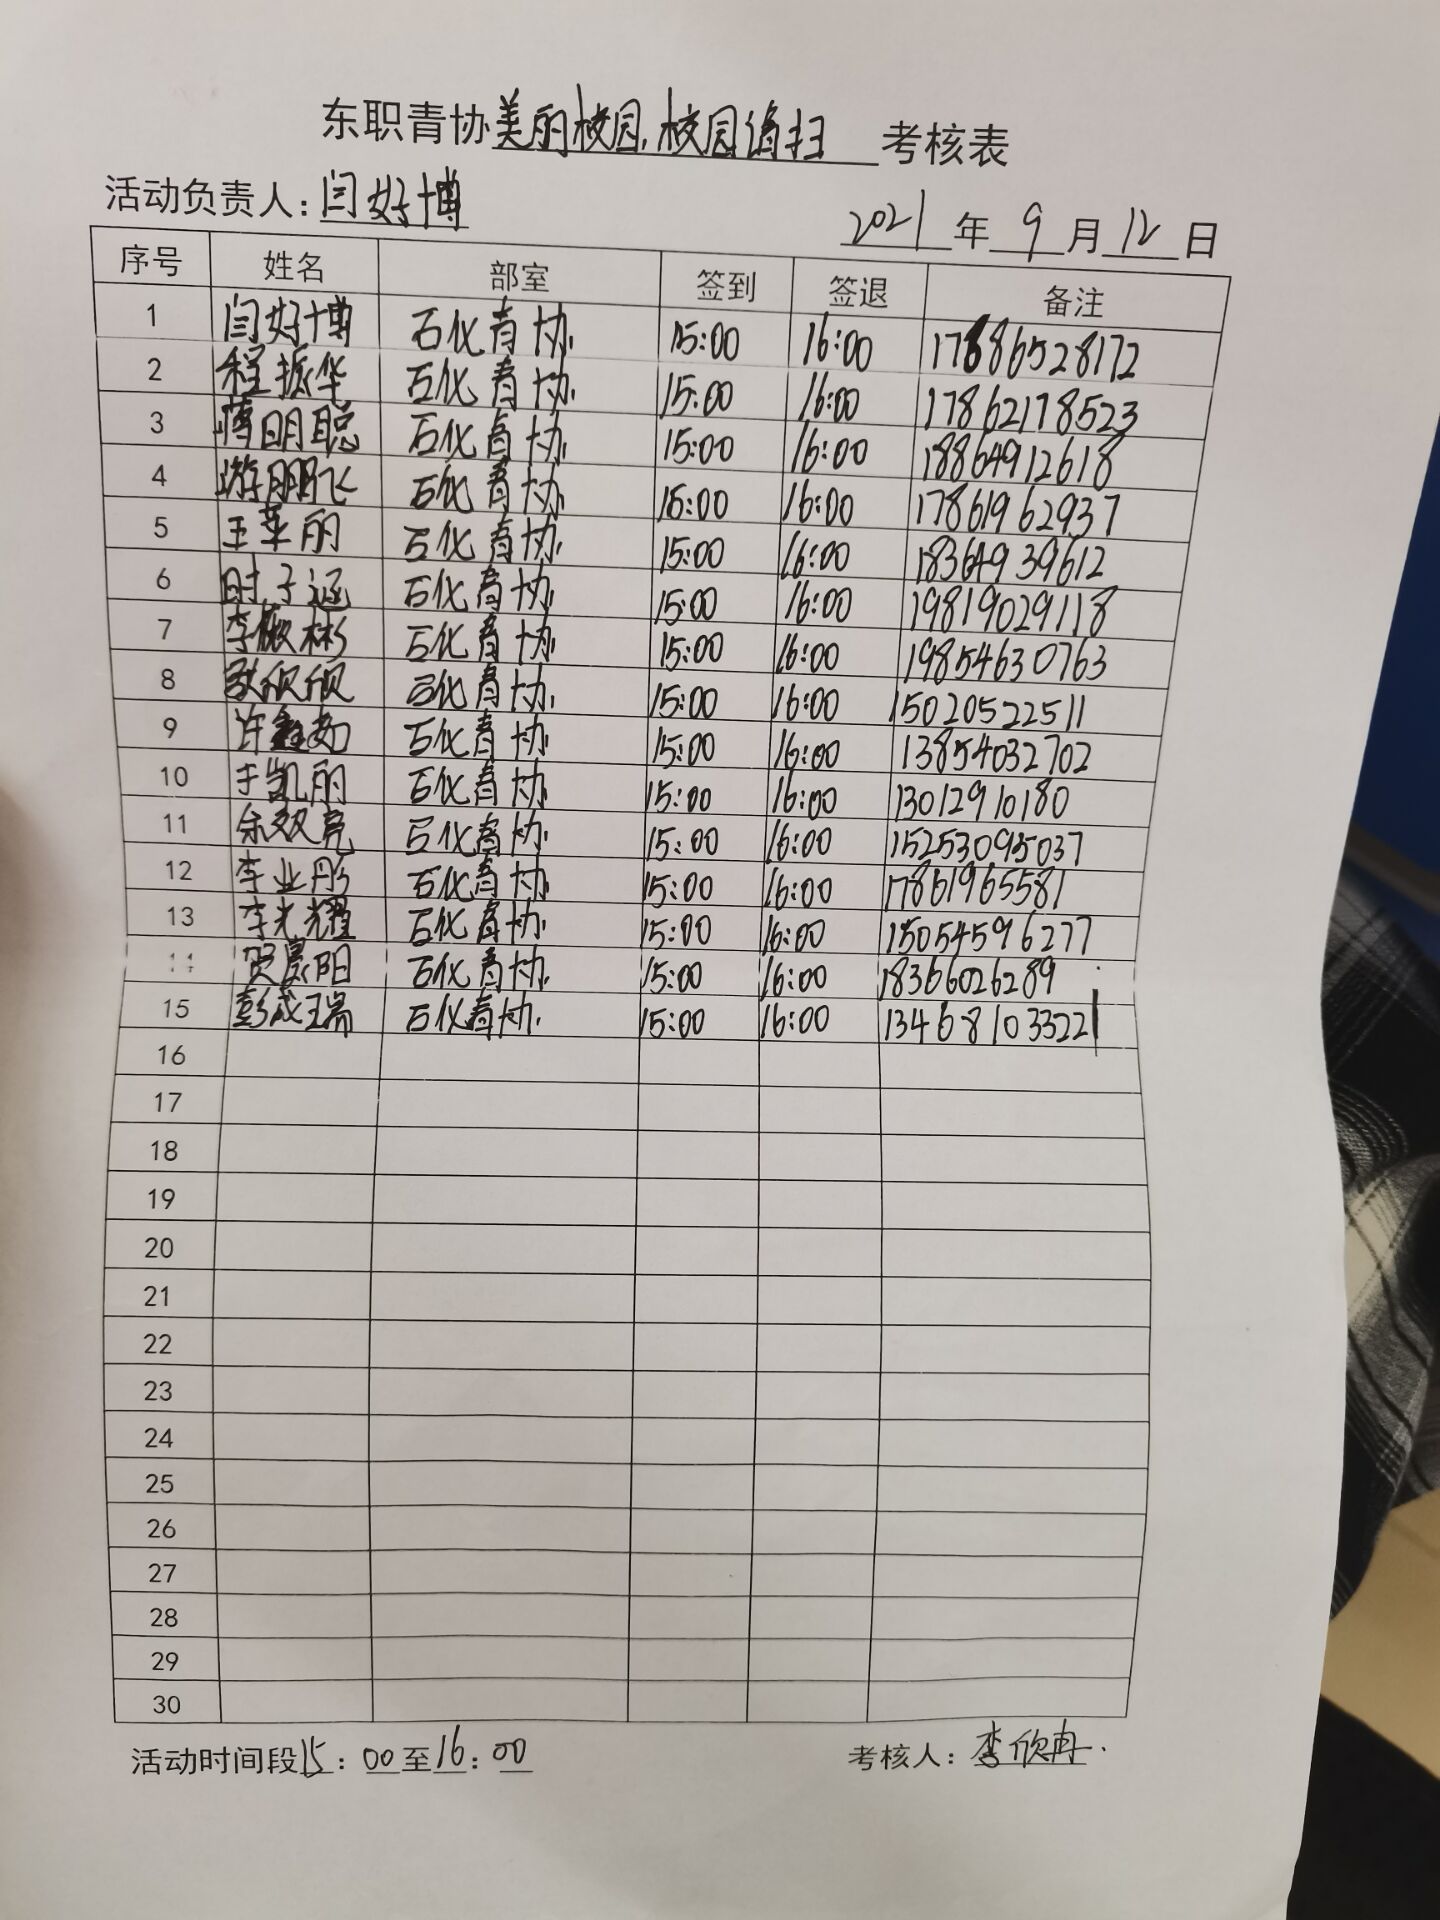 东职青协美丽校园,校园清扫 考核表
活动负责人:闫好博
2021年9月12日
序号 姓名 部室 签到 签退 备注
1 闫好博 石化青协 15:00 16:00 17886528172
2 程振华 石化青协 15:00 16:00 17862178523
3 蒋明聪 石化青协 15:00 16:00 18864912618
4 游鹏飞 石化青协 15:00 16:00 17861962937
5 王苹丽 石化青协 15:00 16:00 18364939612
6 时子涵 石化青协 15:00 16:00 19819029118
7 李敬彬 石化青协 15:00 16:00 19854630763
8 欣欣 石化青协 15:00 16:00 15020522511
9 许鑫茹 石化青协 15:00 16:00 13854032702
10 于凯丽 石化青协 15:00 16:00 13012910180
11 双亮 石化青协 15:00 16:00 152530935037
12 李业彤 石化青协 15:00 16:00 17861965581
13 李光耀 石化青协 15:00 16:00 15054596277
14 贺晨阳 石化青协 15:00 16:00 18366026289
15 彭成瑞 石化青协 15:00 16:00 13468103322
16
17
18
19
20
21
22
23
24
25
26
27
28
29
30
活动时间段15:00至16:00 考核人:李欣冉.